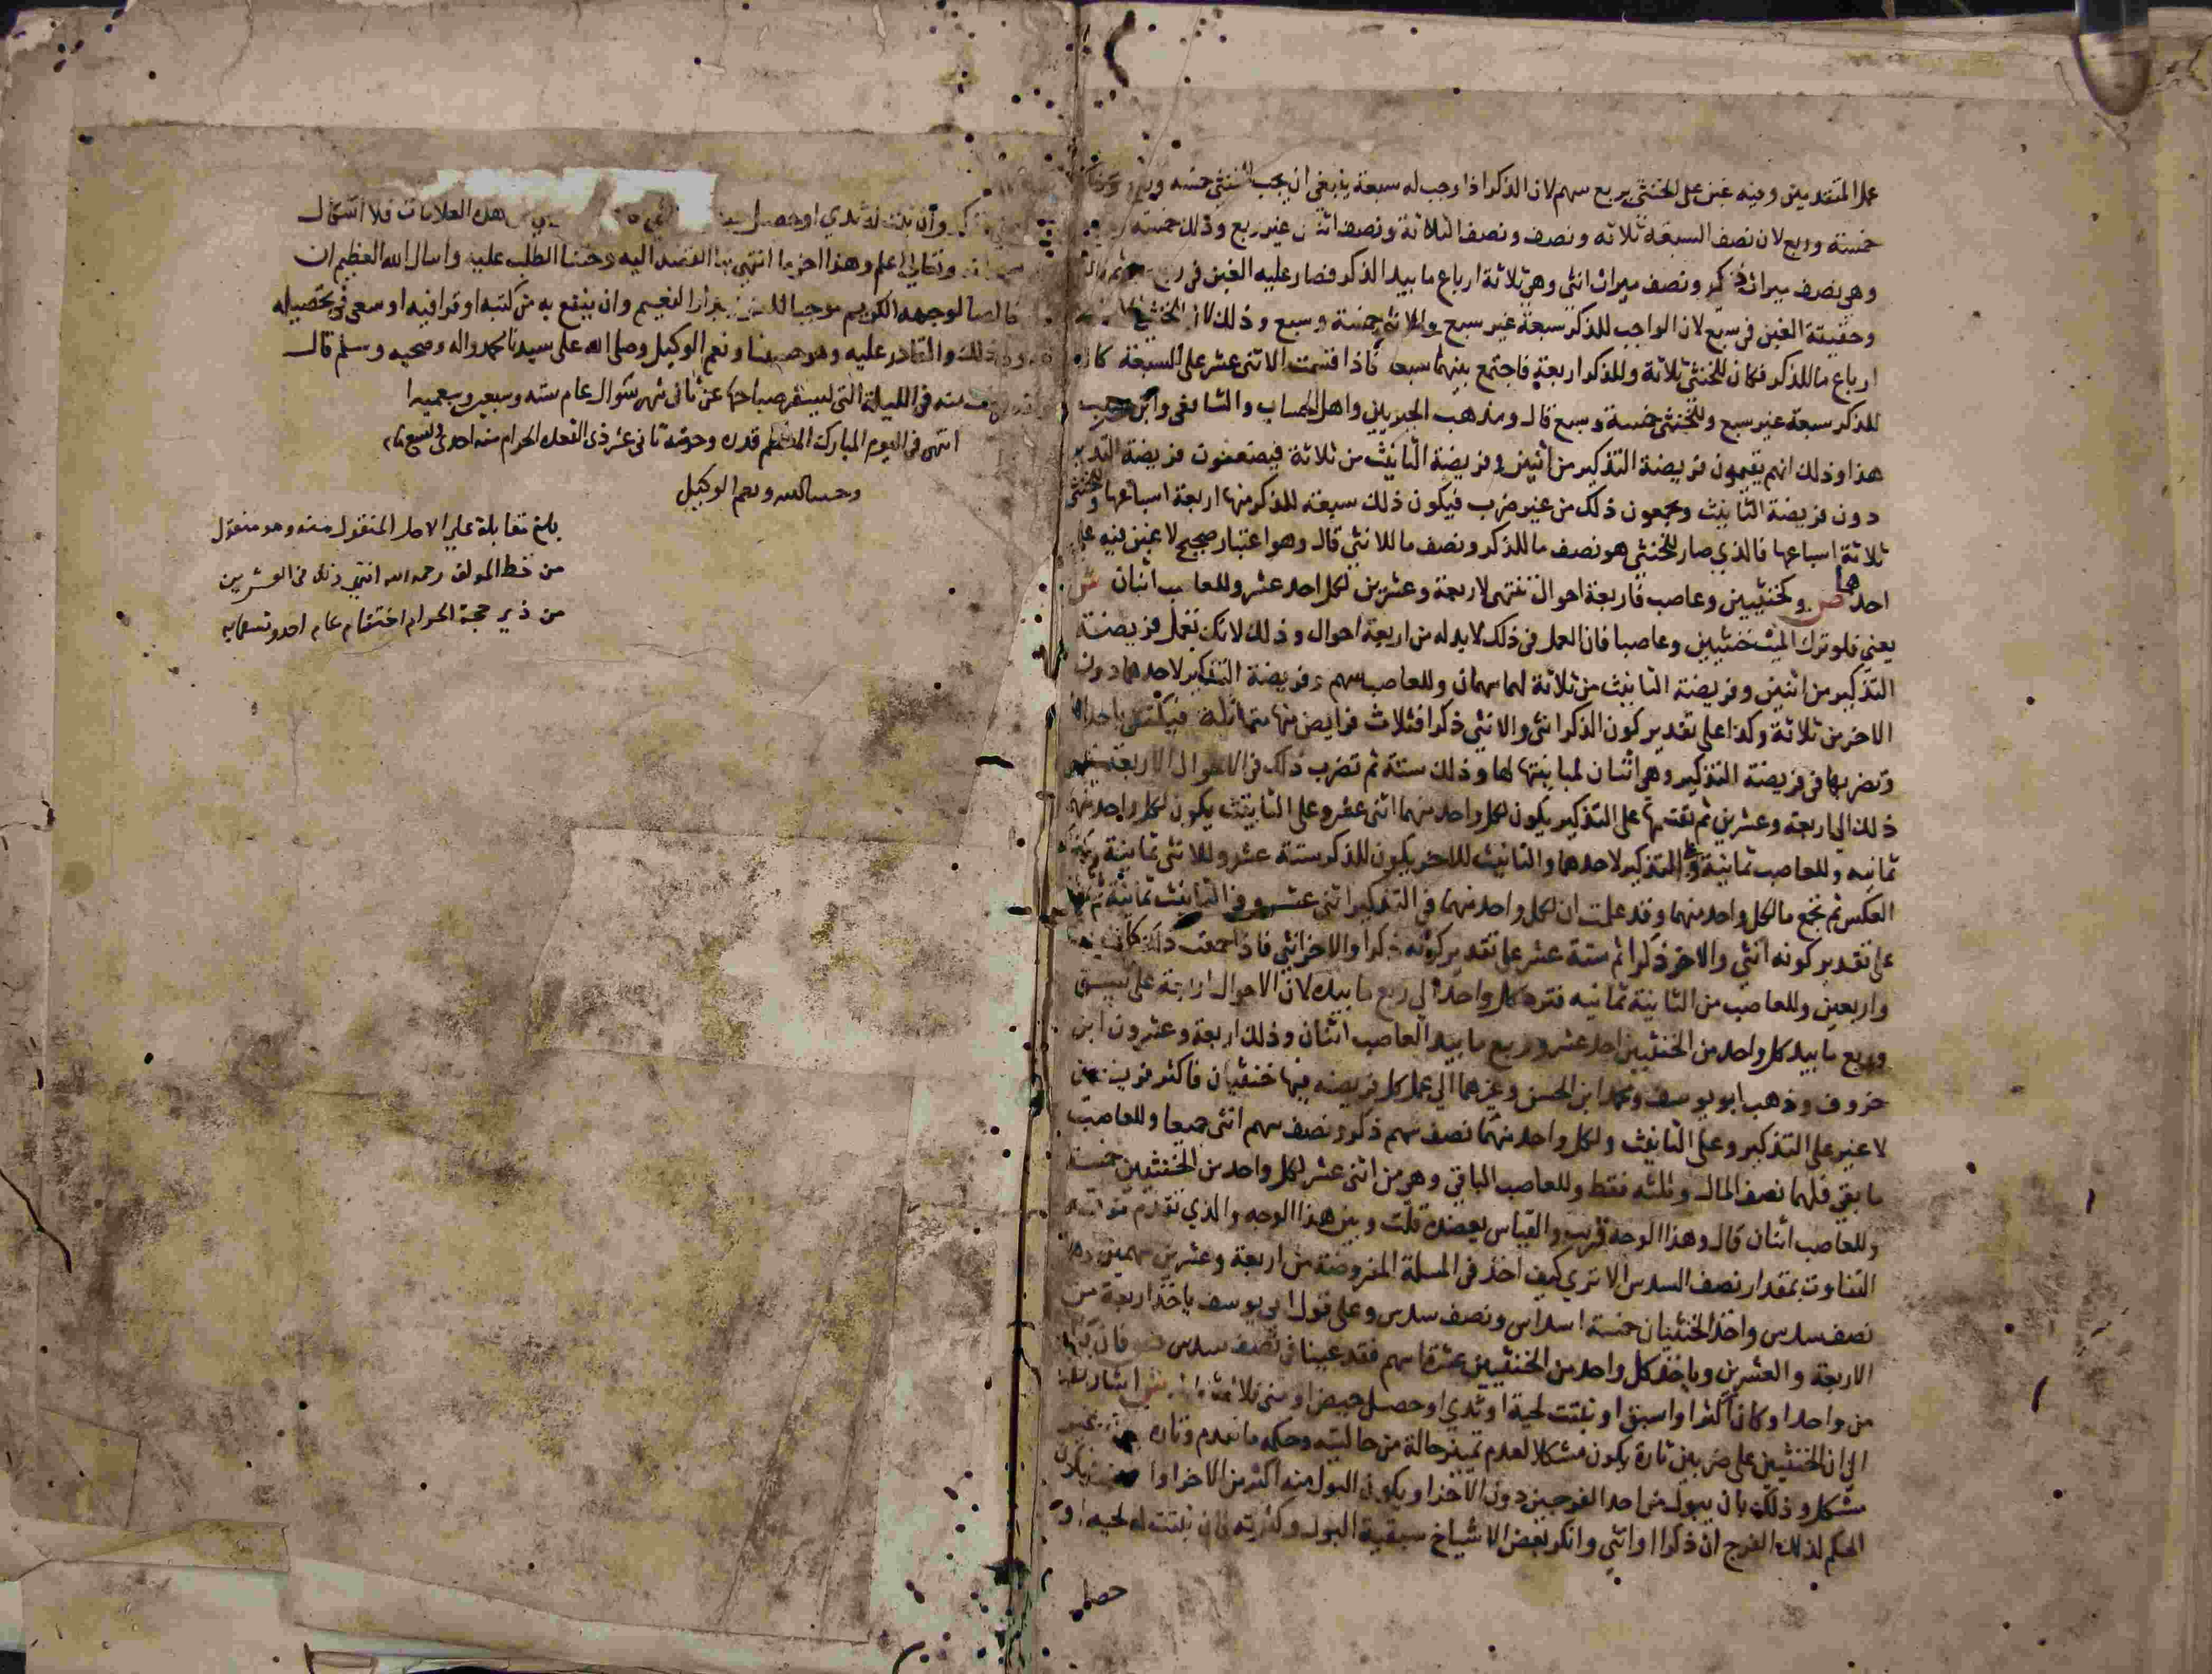 عمل المتقدمين وفيه غبن على الخنثى بربع سهم لان الذكر اذا وجب له سبعة ينبغي ان يجب للخنثى خمسة وربع
خمسة وربع لان نصف السبعة ثلاثة ونصف ونصف الثلاثة ونصف اثنان غير ربع وذلك خمسة
وهي نصف ميراث ذكر ونصف ميراث انثى وهي ثلاثة ارباع ما بيد الذكر فصار عليه الغبن في ربع سهم
وحقيقة الغبن في سبع لان الواجب للذكر سبعة غير سبع وللانثى خمسة وسبع وذلك لان الخنثى
ارباع ما للذكر فكان للخنثى ثلاثة وللذكر اربعة فاجتمع بينهما سبعة فاذا قسمت الاثنى عشر على السبعة كان
للذكر سبعة غير سبع وللخنثى خمسة وسبع قال ومذهب الجبريين واهل الحساب والشافعي وابن حبيب
هذا وذلك انهم يقيمون فريضة التذكير من اثنين وفريضة التانيث من ثلاثة فيضعفون فريضة التذكير
دون فريضة التانيث ويجمعون ذلك من غير ضرب فيكون ذلك سبعة للذكر منها اربعة اسباعها وللخنثى
ثلاثة اسباعها فالذي صار للخنثى هو نصف ما للذكر ونصف ما للانثى قال وهو اعتبار صحيح لا غبن فيه على
احدهما ص وكخنثيين وعاصب فاربعة احوال تنتهي لاربعة وعشرين لكل احد عشر وللعاصب اثنان ش
يعني فلو ترك الميت خنثيين وعاصبا فان العمل في ذلك لا بد له من اربعة احوال وذلك لانك تعمل فريضة
التذكير من اثنين وفريضة التانيث من ثلاثة لهما سهمان وللعاصب سهم وفريضة التذكير لاحدهما دون
الاخر من ثلاثة وكذا على تقدير كون الذكر انثى والانثى ذكرا فثلاث فرايض منها متماثلة فيكتفى باحداها
وتضربها في فريضة التذكير وهي اثنان لمباينتها لها وذلك ستة ثم تضرب ذلك في الاحوال الاربعة
ذلك الى اربعة وعشرين ثم تقسمها على التذكير يكون لكل واحد منهما اثنى عشر وعلى التانيث يكون لكل واحد منهما
ثمانية وللعاصب ثمانية وعلى التذكير لاحدهما والتانيث للاخر يكون للذكر ستة عشر وللانثى ثمانية
العكس ثم تجمع ما لكل واحد منهما وقد علمت ان لكل واحد منهما في التذكير اثنى عشر وفي التانيث ثمانية
على تقدير كونه انثى والاخر ذكرا ثم ستة عشر على تقدير كونه ذكرا والاخر انثى فاذا جمعت ذلك كان
واربعين وللعاصب من الثانية ثمانية فترد كل واحد الى ربع ما بيده لان الاحوال اربعة على
وربع ما بيد كل واحد من الخنثيين احد عشر وربع ما بيد العاصب اثنان وذلك اربعة وعشرون ابن
خروف وذهب ابو يوسف ومحمد ابن الحسن وغيرهما الى عمل كل فريضة فيها خنثيان فاكثر فريضتين
لا غير على التذكير وعلى التانيث ولكل واحد منهما نصف سهم ذكر ونصف سهم انثى جميعا وللعاصب
ما بقي فلهما نصف المال وثلثه فقط وللعاصب الباقي وهي من اثنى عشر لكل واحد من الخنثيين خمسة
وللعاصب اثنان قال وهذا الوجه قريب والقياس يعضده قلت وبين هذا الوجه والذي تقدم
التفاوت بمقدار نصف السدس الا ترى كيف اخذ في المسلة المفروضة من اربعة وعشرين سهمين وهما
نصف سدس واخذ الخنثيان خمسة اسداس ونصف سدس وعلى قول ابي يوسف ياخذ اربعة من
الاربعة والعشرين وياخذ كل واحد من الخنثيين عشرة اسهم فقد غبنا في نصف سدس ص فان بال
من واحد او كان اكثر او اسبق او نبتت لحية او ثدي او حصل حيض او منى فلا اشكال ش اشار
الى ان الخنثيين على ضربين تارة يكون مشكلا لعدم تميز حالة من حالتيه وحكمه ما تقدم وتارة يكون غير
مشكل وذلك بان يبول من احد الفرجين دون الاخر او يكون البول منه اكثر من الاخر او اسبق فيكون
الحكم لذلك الفرج ان ذكرا او انثى وانكر بعض الاشياخ سبقية البول وكثرته فان نبتت له لحية او
حصل
وان نبت له ثدي او حصل هذه العلامات فلا اشكال
وتعالى اعلم وهذا اخر ما انتهى بنا القصد اليه وحثنا الطلب عليه واسال الله العظيم ان
خالصا لوجهه الكريم موجبا للفوز بدار النعيم وان ينفع به من كتبه او قراه او سعى في تحصيله
ذلك والقادر عليه وهو حسبنا ونعم الوكيل وصلى الله على سيدنا محمد واله وصحبه وسلم قال
منه في الليلة التي ليسفر صباحها عن ثاني شهر شوال عام ستة وسبعين وسبعمية
انتهى في اليوم المبارك المعظم قدره وحرمته ثاني عشر ذي القعدة الحرام سنة احدى
وحسبنا الله ونعم الوكيل
بلغ مقابلة على الاصل المنقول منه وهو منقول
من خط المولف رحمه الله انتهى ذلك في العشرين
من ذي حجة الحرام اختتام عام احد وتسعمايه